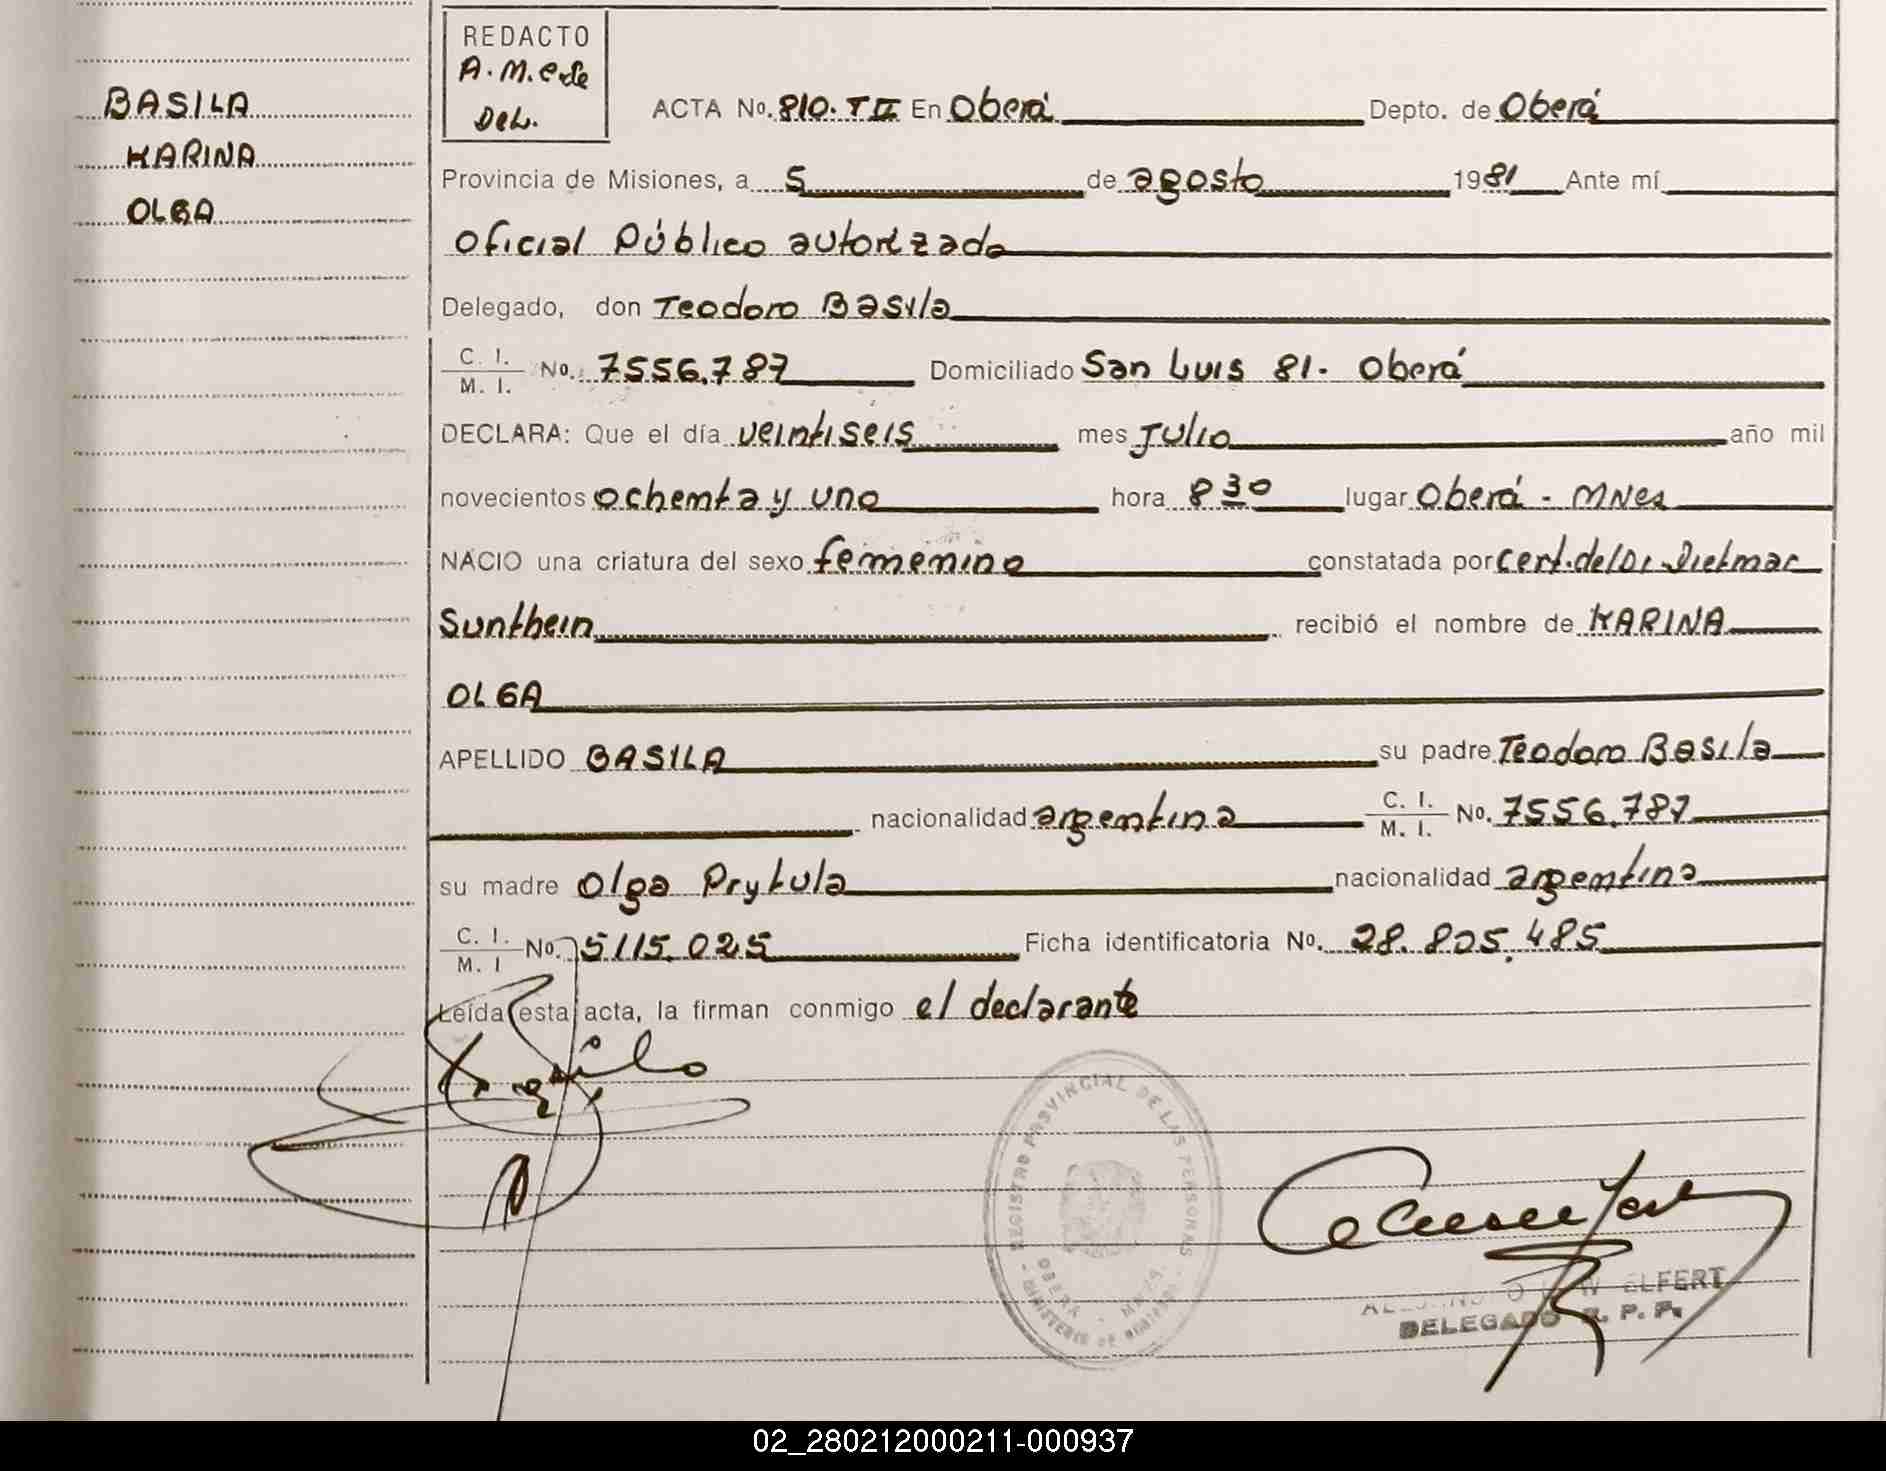 BASILA
KARINA
OLGA
REDACTO
A. M. de
Del.
ACTA No. 810. T II En Oberá Depto. de Oberá
Provincia de Misiones, a 5 de agosto 1981 Ante mí
Oficial Público autorizado
Delegado, don Teodoro Basila
C. I.
M. I. No. 7556.787 Domiciliado San Luis 81. Oberá
DECLARA: Que el día veintiseis mes Julio año mil
novecientos ochenta y uno hora 8 30 lugar Oberá - MNes
NACIO una criatura del sexo femenino constatada por cert. del Dr. Dietmar
Sunthein recibió el nombre de KARINA
OLGA
APELLIDO BASILA su padre Teodoro Basila
nacionalidad argentina C. I. M. I. No. 7556.787
su madre Olga Prytula nacionalidad argentina
C. I. M. I No. 5115.025 Ficha identificatoria No. 28.805.485
Leída esta acta, la firman conmigo el declarante
REGISTRO PROVINCIAL DE LAS PERSONAS
OBERA
MINISTERIO DE GOBIERNO
ELFERT
DELEGADO R. P. P.
02_280212000211-000937